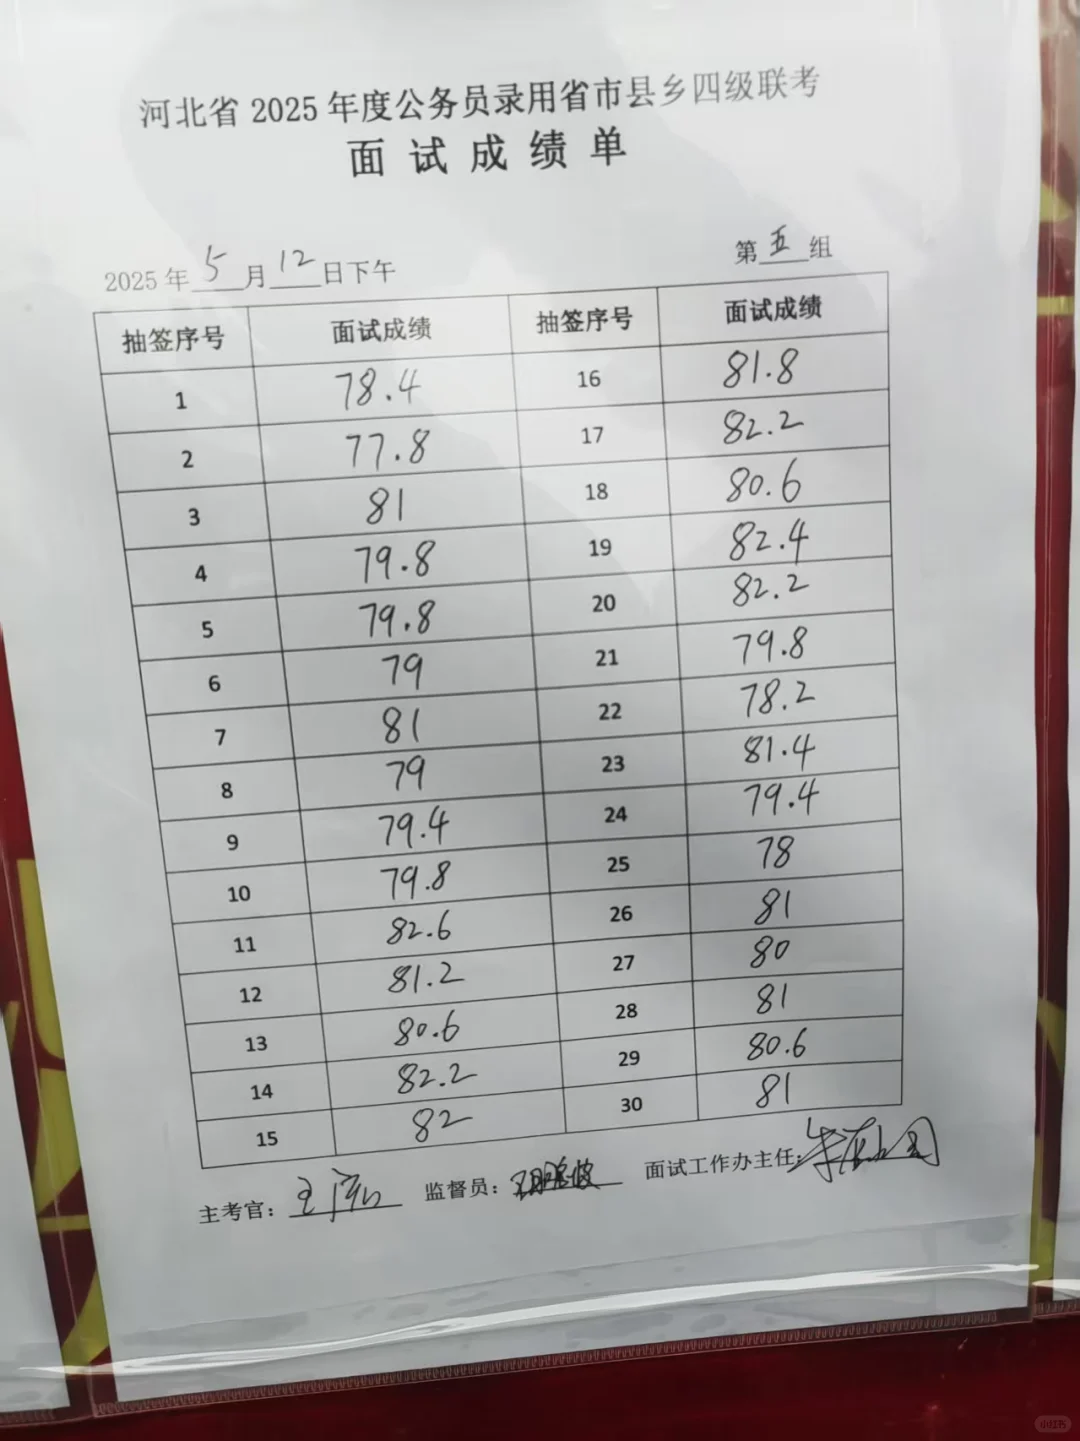 河北省 2025 年度公务员录用省市县乡四级联考
面试成绩单
2025 年 5 月 12 日下午 第 五 组
抽签序号 面试成绩 抽签序号 面试成绩
1 78.4 16 81.8
2 77.8 17 82.2
3 81 18 80.6
4 79.8 19 82.4
5 79.8 20 82.2
6 79 21 79.8
7 81 22 78.2
8 79 23 81.4
9 79.4 24 79.4
10 79.8 25 78
11 82.6 26 81
12 81.2 27 80
13 80.6 28 81
14 82.2 29 80.6
15 82 30 81
主考官: 监督员: 面试工作办主任:
小红书